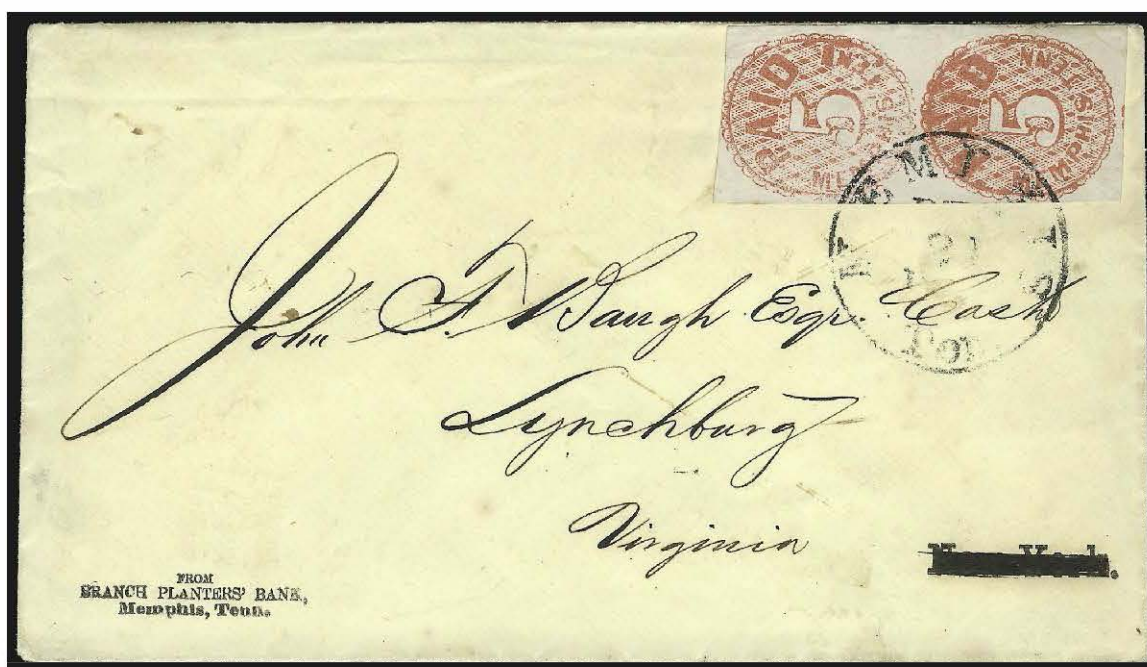 PAID 5 MEMPHIS TENN
PAID 5 MEMPHIS TENN
MEMPHIS
21
John F. Waugh Esqr. Cashr
Lynchburg
Virginia
FROM
BRANCH PLANTERS' BANK,
Memphis, Tenn.
New York.